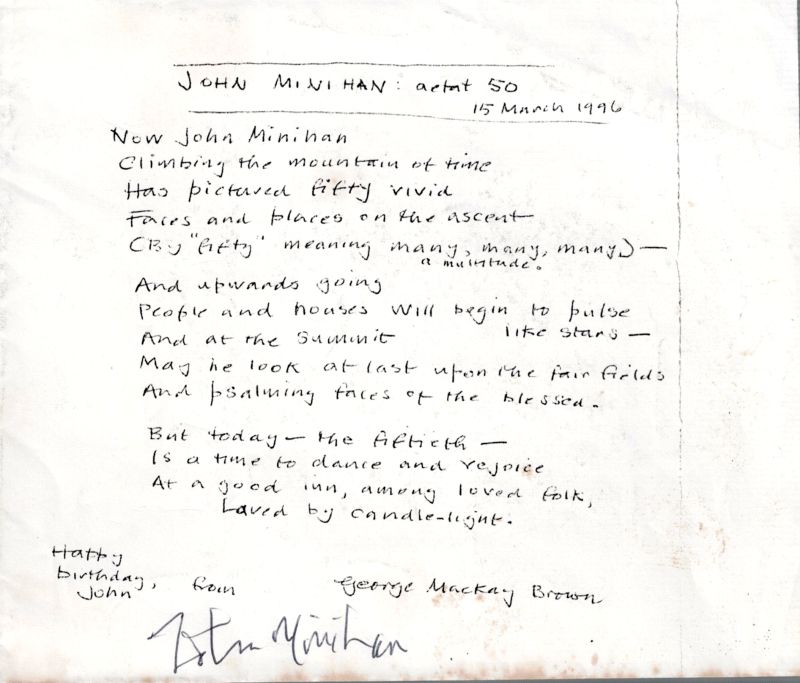 JOHN MINIHAN: aetat 50
15 March 1996
Now John Minihan
Climbing the mountain of time
Has pictured fifty vivid
Faces and places on the ascent
(By "fifty" meaning many, many, many) —
a multitude.
And upwards going
People and houses will begin to pulse
like stars —
And at the summit
May he look at last upon the fair fields
And psalming faces of the blessed.
But today — the fiftieth —
Is a time to dance and rejoice
At a good inn, among loved folk,
Laved by candle-light.
Happy
birthday,
John
from George Mackay Brown
John Minihan